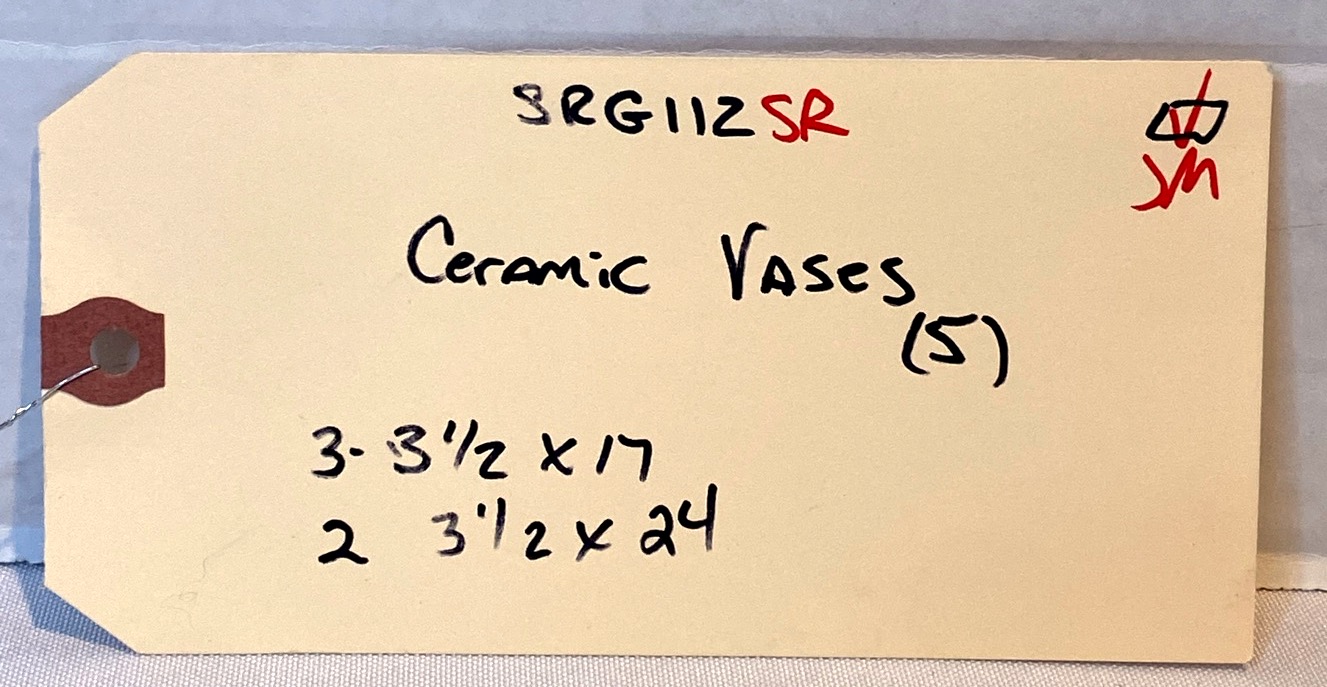 SRG112SR
JM
Ceramic Vases
(5)
3- 3 1/2 x 17
2 3 1/2 x 24